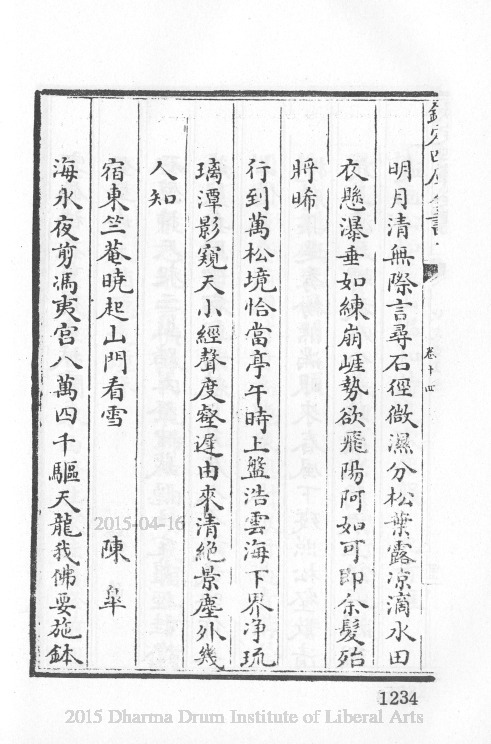 欽定四庫全書
卷十四
明月清無際言尋石徑微濕分松葉露涼滴水田
衣懸瀑垂如練崩崕勢欲飛陽阿如可即余髮殆
將晞
行到萬松境恰當亭午時上盤浩雲海下界净琉
璃潭影窺天小經聲度壑遲由來清絕景塵外幾
人知
宿東竺菴曉起山門看雪
陳皐
海水夜剪馮夷宮八萬四千驅天龍我佛要施鉢
2015-04-16
1234
2015 Dharma Drum Institute of Liberal Arts